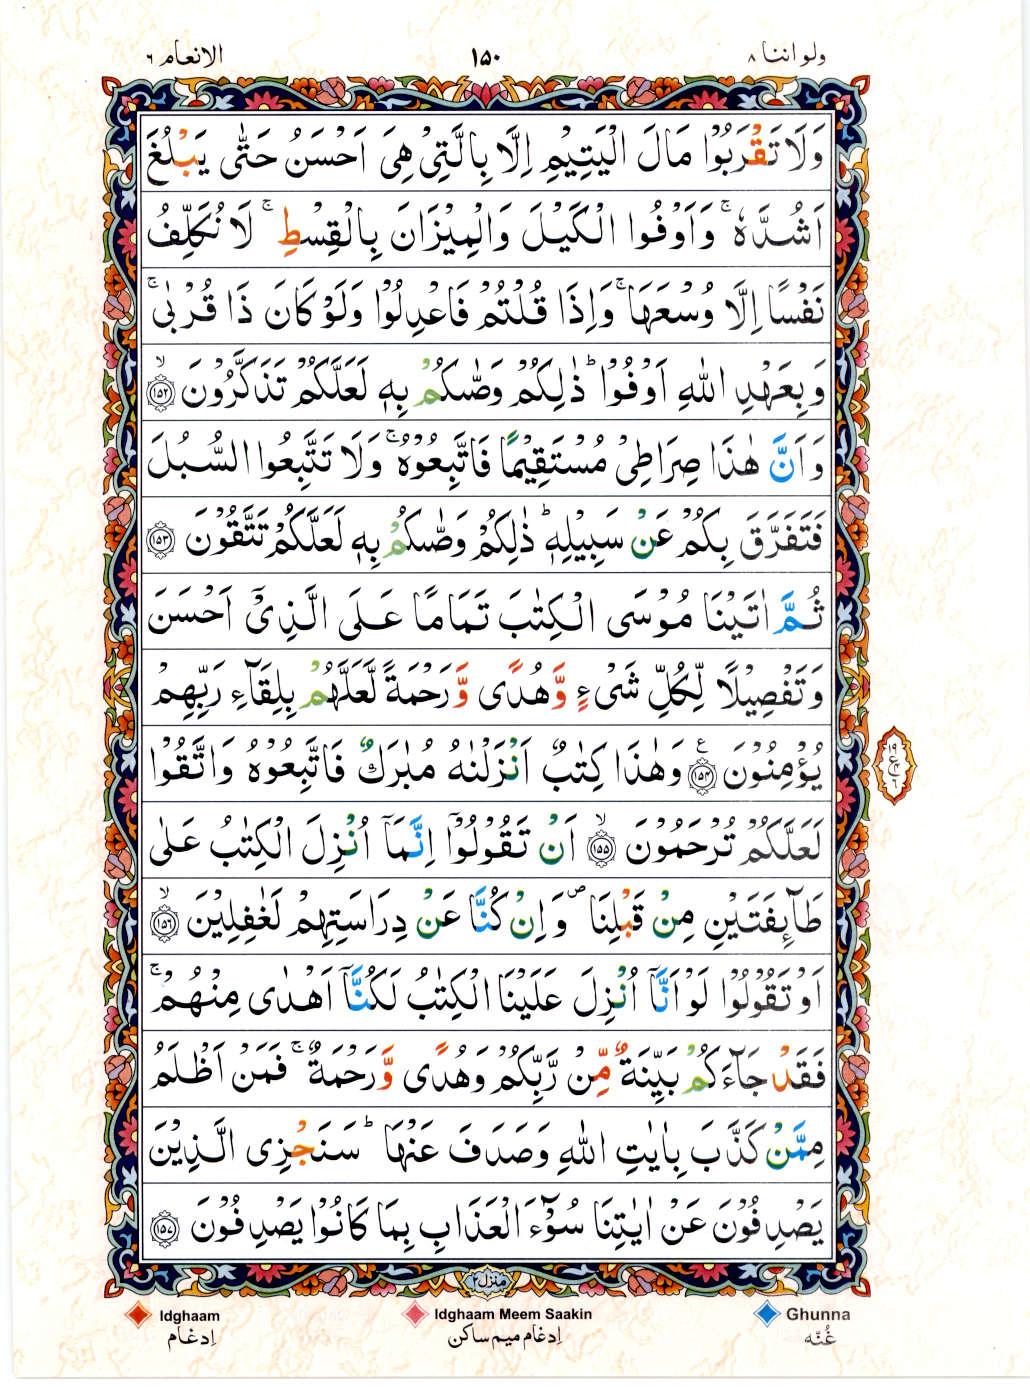 ولو اننا ۸
۱۵۰
الانعام ٦
وَلَا تَقْرَبُوْا مَالَ الْيَتِيْمِ اِلَّا بِالَّتِىْ هِىَ اَحْسَنُ حَتّٰى يَبْلُغَ
اَشُدَّهٗ ۚ وَاَوْفُوا الْكَيْلَ وَالْمِيْزَانَ بِالْقِسْطِ ۚ لَا نُكَلِّفُ
نَفْسًا اِلَّا وُسْعَهَا ۚ وَاِذَا قُلْتُمْ فَاعْدِلُوْا وَلَوْ كَانَ ذَا قُرْبٰى ۚ
وَبِعَهْدِ اللّٰهِ اَوْفُوْا ؕ ذٰلِكُمْ وَصّٰٮكُمْ بِهٖ لَعَلَّكُمْ تَذَكَّرُوْنَ ۙ ﴿۱۵۲﴾
وَاَنَّ هٰذَا صِرَاطِىْ مُسْتَقِيْمًا فَاتَّبِعُوْهُ ۚ وَلَا تَتَّبِعُوا السُّبُلَ
فَتَفَرَّقَ بِكُمْ عَنْ سَبِيْلِهٖ ؕ ذٰلِكُمْ وَصّٰٮكُمْ بِهٖ لَعَلَّكُمْ تَتَّقُوْنَ ﴿۱۵۳﴾
ثُمَّ اٰتَيْنَا مُوْسَى الْكِتٰبَ تَمَامًا عَلَى الَّذِىْۤ اَحْسَنَ
وَتَفْصِيْلًا لِّكُلِّ شَىْءٍ وَّهُدًى وَّرَحْمَةً لَّعَلَّهُمْ بِلِقَآءِ رَبِّهِمْ
يُؤْمِنُوْنَ ﴿۱۵۴﴾ ع وَهٰذَا كِتٰبٌ اَنْزَلْنٰهُ مُبٰرَكٌ فَاتَّبِعُوْهُ وَاتَّقُوْا
لَعَلَّكُمْ تُرْحَمُوْنَ ۙ ﴿۱۵۵﴾ اَنْ تَقُوْلُوْۤا اِنَّمَاۤ اُنْزِلَ الْكِتٰبُ عَلٰى
طَآٮِٕفَتَيْنِ مِنْ قَبْلِنَا ۖ وَاِنْ كُنَّا عَنْ دِرَاسَتِهِمْ لَغٰفِلِيْنَ ۙ ﴿۱۵۶﴾
اَوْ تَقُوْلُوْا لَوْ اَنَّاۤ اُنْزِلَ عَلَيْنَا الْكِتٰبُ لَكُنَّاۤ اَهْدٰى مِنْهُمْ ۚ
فَقَدْ جَآءَكُمْ بَيِّنَةٌ مِّنْ رَّبِّكُمْ وَهُدًى وَّرَحْمَةٌ ۚ فَمَنْ اَظْلَمُ
مِمَّنْ كَذَّبَ بِاٰيٰتِ اللّٰهِ وَصَدَفَ عَنْهَا ؕ سَنَجْزِى الَّذِيْنَ
يَصْدِفُوْنَ عَنْ اٰيٰتِنَا سُوْٓءَ الْعَذَابِ بِمَا كَانُوْا يَصْدِفُوْنَ ﴿۱۵۷﴾
منزل ۲
Ghunna
غُنّه
Idghaam Meem Saakin
اِدغام میم ساکن
Idghaam
اِدغام